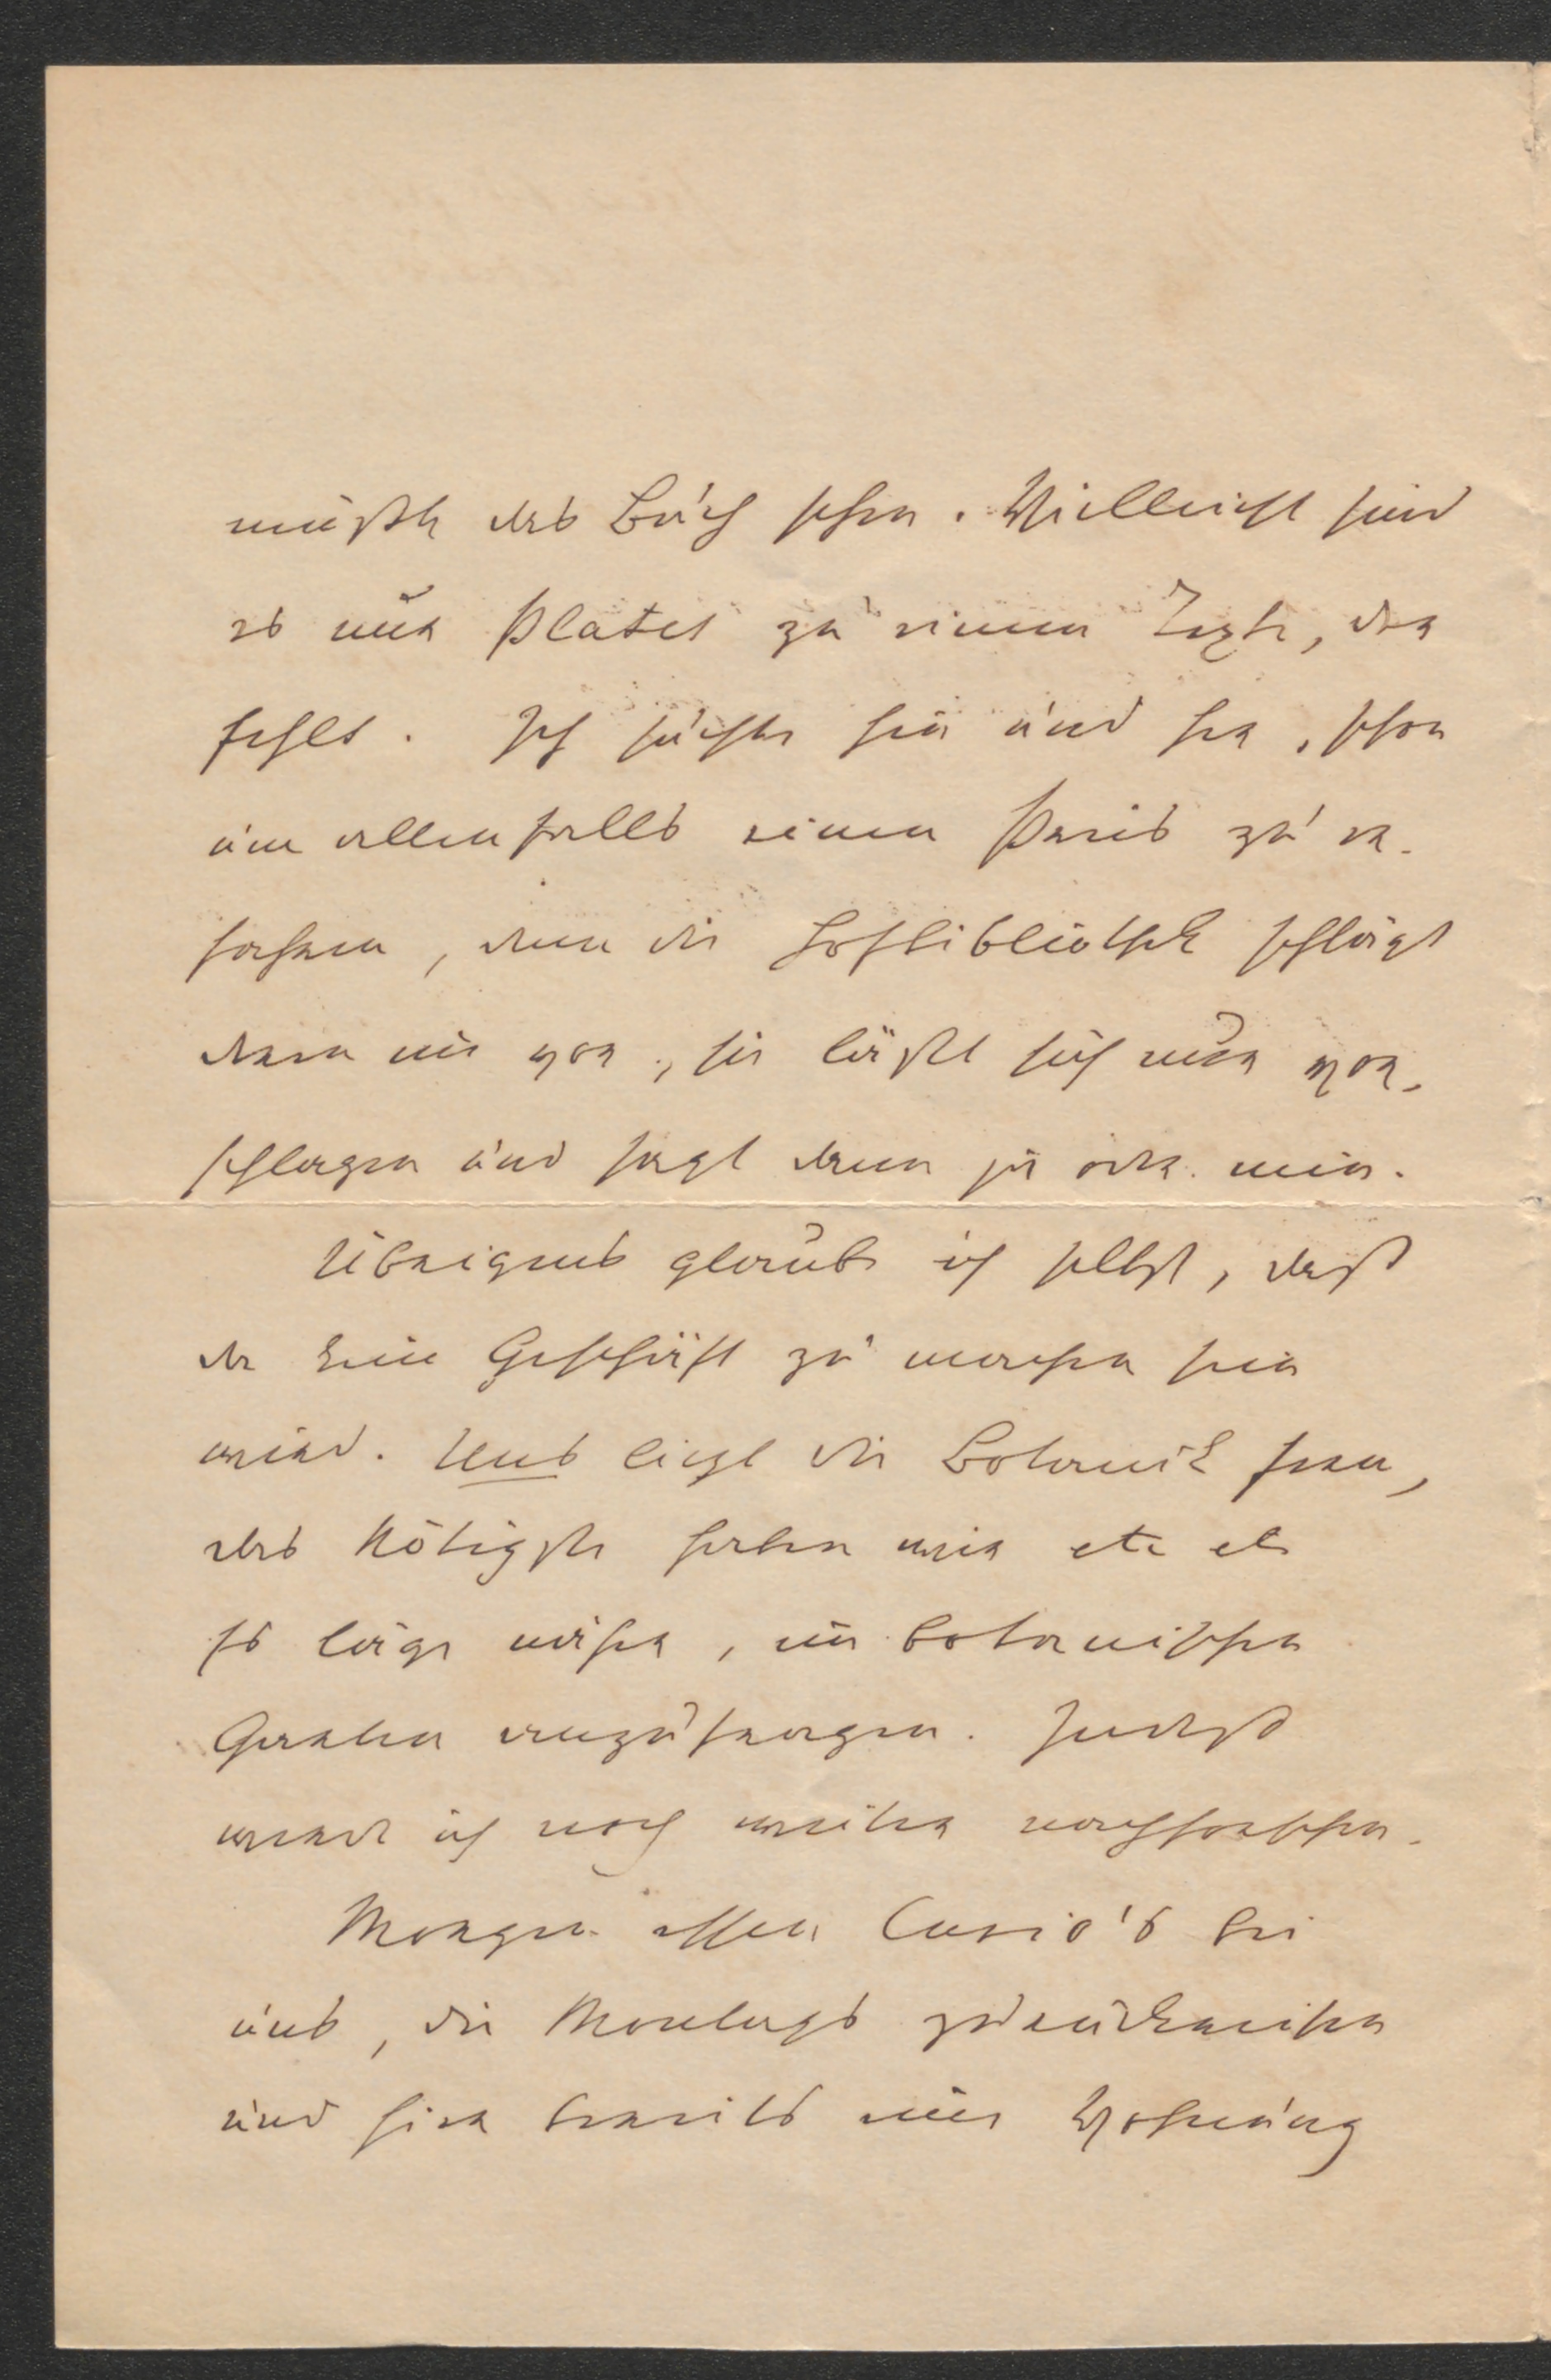 müßte das Buch sehen. Vielleicht sind
es nur Plates zu einem Texte, der
fehlt. Ich suchte hin und her, schon
um allenfalls einen Preis zu er-
fahren, denn die Hofbibliothek schlägt
dann nie vor, sie läßt sich nur vor-
schlagen und sagt dann ja oder nein.
Übrigens glaube ich selbst, daß
da kein Geschäft zu machen sein
wird. Uns liegt die Botanik fern,
das Nötigste haben wir etc etc
Es läge näher, im botanischen
Garten anzufragen. Indeß
werde ich noch weiter nachforschen.
Morgen essen Cusio's bei
uns, die Montags zurückreisen
und hier bereits eine Wohnung